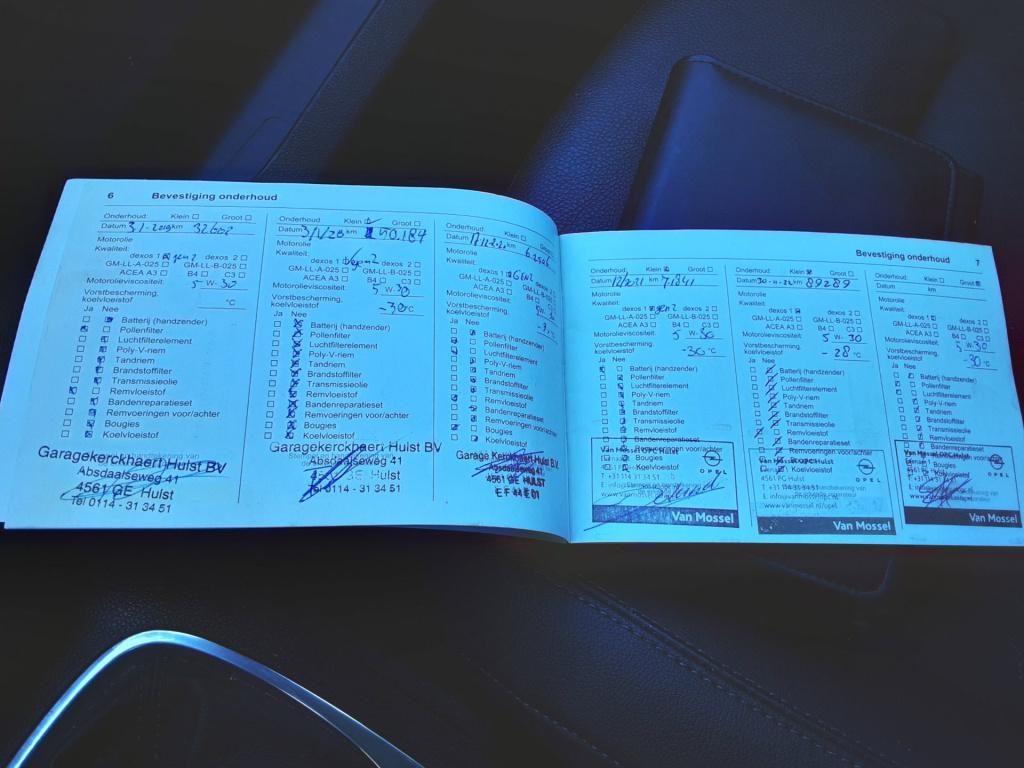 6 Bevestiging onderhoud
Onderhoud: Klein Groot
Datum 3/1-2019 km 32602
Motorolie
Kwaliteit:
dexos 1 gen2 dexos 2
GM-LL-A-025 GM-LL-B-025
ACEA A3 B4 C3
Motorolieviscositeit: 5 W-30
Vorstbescherming.
koelvloeistof °C
Ja Nee
Batterij (handzender)
Pollenfilter
Luchtfilterelement
Poly-V-riem
Tandriem
Brandstoffilter
Transmissieolie
Remvloeistof
Bandenreparatieset
Remvoeringen voor/achter
Bougies
Koelvloeistof
Garagekerckhaert Hulst BV
Absdaalseweg 41
4561 GE Hulst
Tel 0114 - 31 34 51
Onderhoud: Klein Groot
Datum 3/1/20 km 50.189
Motorolie
Kwaliteit:
dexos 1 gen2 dexos 2
GM-LL-A-025 GM-LL-B-025
ACEA A3 B4 C3
Motorolieviscositeit: 5 W-30
Vorstbescherming.
koelvloeistof -30 °C
Ja Nee
Batterij (handzender)
Pollenfilter
Luchtfilterelement
Poly-V-riem
Tandriem
Brandstoffilter
Transmissieolie
Remvloeistof
Bandenreparatieset
Remvoeringen voor/achter
Bougies
Koelvloeistof
Garagekerckhaert Hulst BV
Absdaalseweg 41
Hulst
Tel 0114 - 31 34 51
Onderhoud: Klein Groot
Datum km
Motorolie
Kwaliteit:
dexos 1 GEN2 dexos 2
GM-LL-A-025 GM-LL-B-025
ACEA A3 B4
Motorolieviscositeit:
Vorstbescherming.
koelvloeistof
Ja Nee
Batterij (handzender)
Pollenfilter
Luchtfilterelement
Poly-V-riem
Tandriem
Brandstoffilter
Transmissieolie
Remvloeistof
Bandenreparatieset
Remvoeringen voor/achter
Bougies
Koelvloeistof
Garage Kerckhaert Hulst BV
Absdaalseweg 41
4561 GE HULST
Bevestiging onderhoud 7
Onderhoud: Klein Groot
Datum 12/2021 km 71841
Motorolie
Kwaliteit:
dexos 1 gen2 dexos 2
GM-LL-A-025 GM-LL-B-025
ACEA A3 B4 C3
Motorolieviscositeit: 5 W-30
Vorstbescherming.
koelvloeistof -36 °C
Ja Nee
Batterij (handzender)
Pollenfilter
Luchtfilterelement
Poly-V-riem
Tandriem
Brandstoffilter
Transmissieolie
Remvloeistof
Bandenreparatieset
Remvoeringen voor/achter
Bougies
Koelvloeistof
OPEL
Van Mossel
Onderhoud: Klein Groot
Datum 30-11-22 km 89289
Motorolie
Kwaliteit:
dexos 1 dexos 2
GM-LL-A-025 GM-LL-B-025
ACEA A3 B4 C3
Motorolieviscositeit: 5 W-30
Vorstbescherming.
koelvloeistof -28 °C
Ja Nee
Batterij (handzender)
Pollenfilter
Luchtfilterelement
Poly-V-riem
Tandriem
Brandstoffilter
Transmissieolie
Remvloeistof
Bandenreparatieset
Remvoeringen voor/achter
Van Mossel OPC Hulst
4561 PG Hulst
www.vanmossel.nl/opel
OPEL
Van Mossel
Onderhoud: Klein Groot
Datum km
Motorolie
Kwaliteit:
dexos 1 dexos 2
GM-LL-A-025 GM-LL-B-025
ACEA A3 B4 C3
Motorolieviscositeit: 5 W-30
Vorstbescherming.
koelvloeistof -30 °C
Ja Nee
Batterij (handzender)
Pollenfilter
Luchtfilterelement
Poly-V-riem
Tandriem
Brandstoffilter
Transmissieolie
Remvloeistof
Bandenreparatieset
Van Mossel OPC Hulst
Bougies
OPEL
Van Mossel